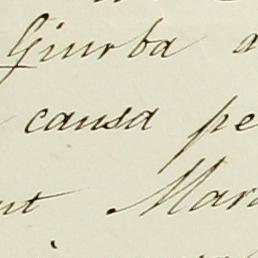 Giurba
causa pe
Mar